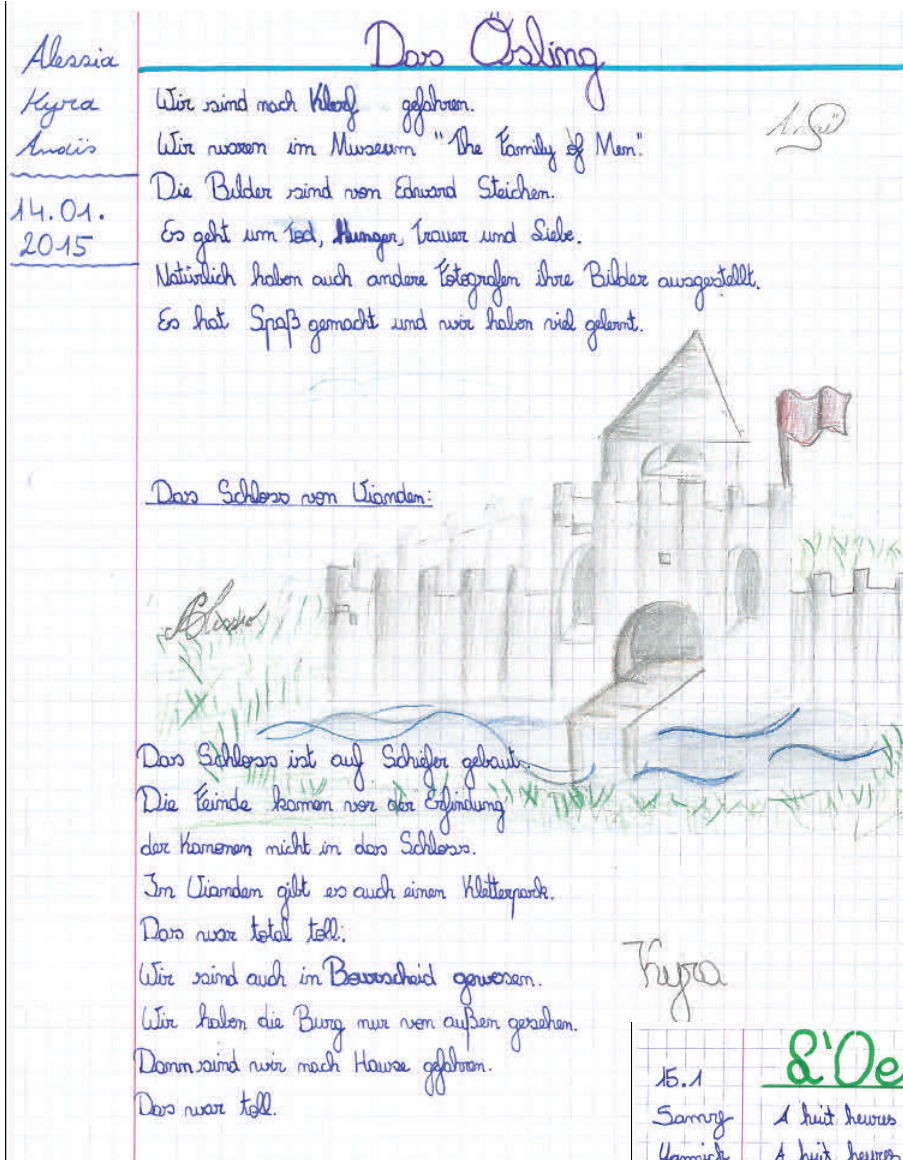 Alessia
Kyra
Anaïs
14.01.
2015
Das Ösling
Wir sind nach Klerf gefahren.
Wir waren im Museum "The Family of Men".
Die Bilder sind von Edward Steichen.
Es geht um Tod, Hunger, Trauer und Liebe.
Natürlich haben auch andere Fotografen ihre Bilder ausgestellt.
Es hat Spaß gemacht und wir haben viel gelernt.
Das Schloss von Vianden:
Alessia
Das Schloss ist auf Schiefer gebaut.
Die Feinde kamen vor der Erfindung
der Kanonen nicht in das Schloss.
In Vianden gibt es auch einen Kletterpark.
Das war total toll.
Wir sind auch in Bourscheid gewesen.
Wir haben die Burg nur von außen gesehen.
Dann sind wir nach Hause gefahren.
Das war toll.
Kyra
15.1
Samy
Yannick
L'Oe
A huit heures
A huit heures